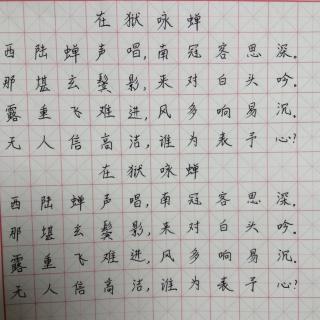 在狱咏蝉
西陆蝉声唱,南冠客思深。
那堪玄鬓影,来对白头吟。
露重飞难进,风多响易沉。
无人信高洁,谁为表予心?
在狱咏蝉
西陆蝉声唱,南冠客思深。
那堪玄鬓影,来对白头吟。
露重飞难进,风多响易沉。
无人信高洁,谁为表予心?